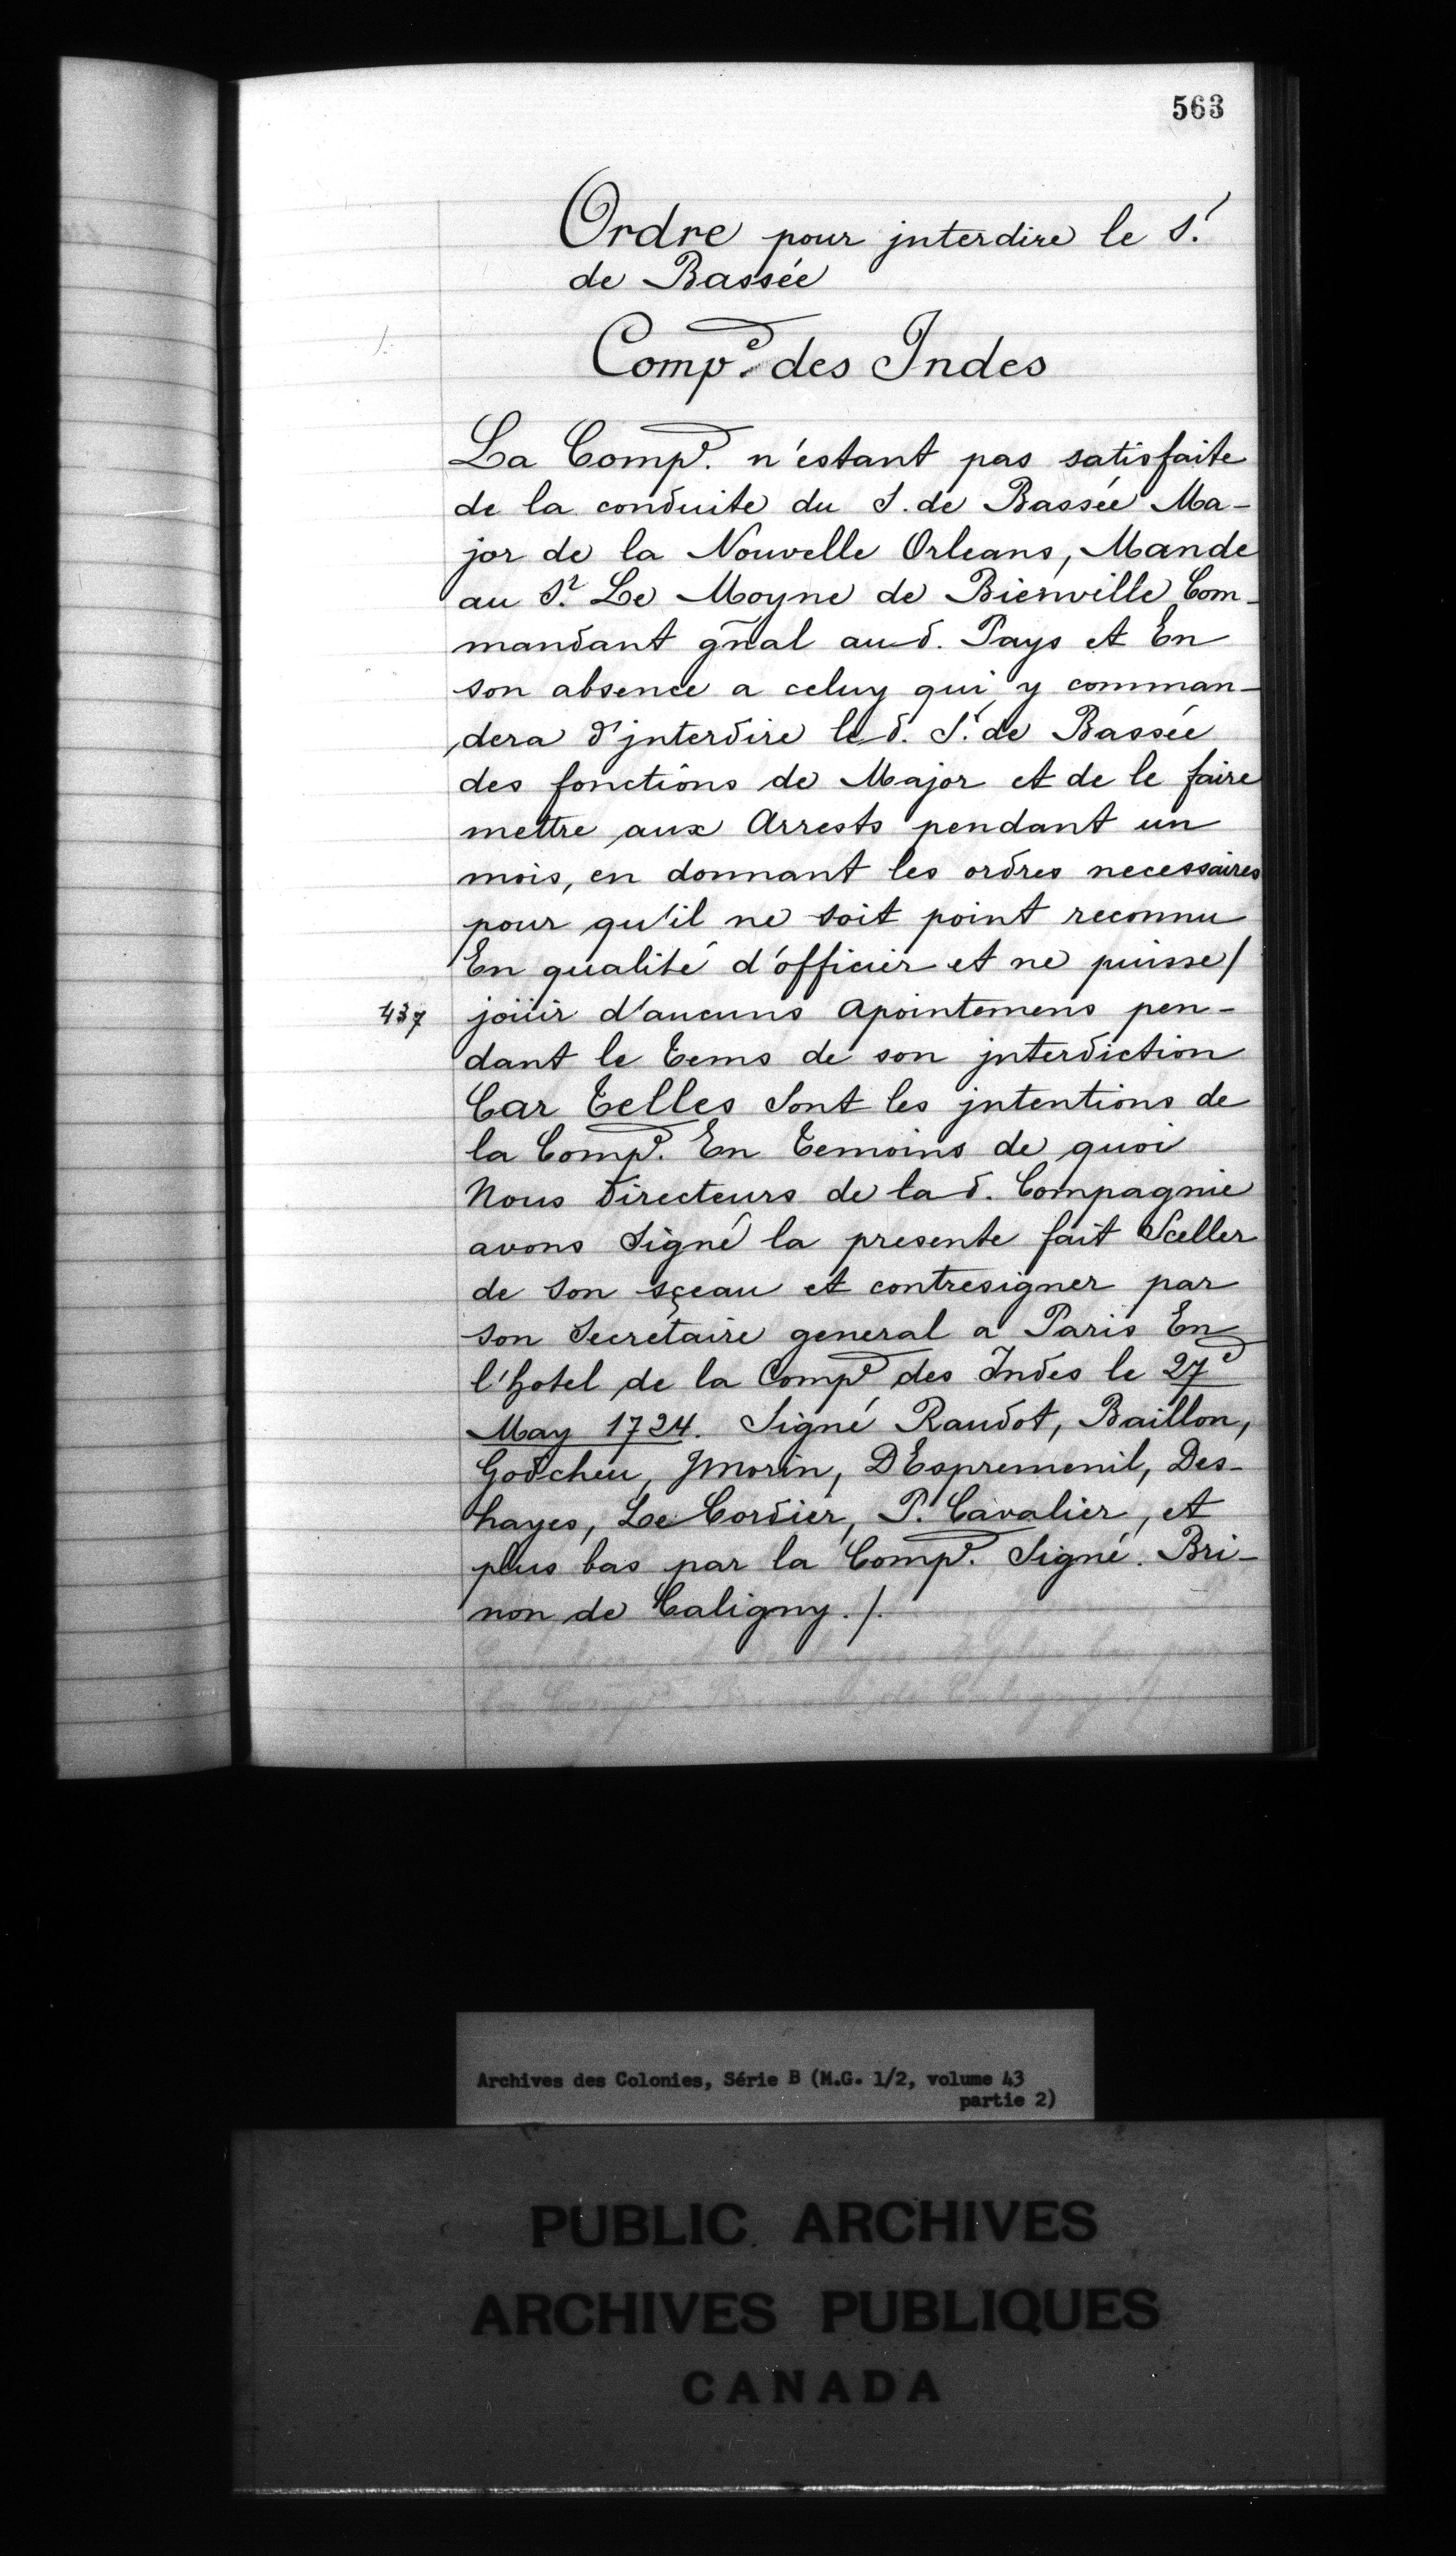 563
Ordre pour jnterdire le S.r
de Bassée
Comp.e des Indes
La Comp.e n'estant pas satisfaite
de la conduite du S. de Bassée Ma-
jor de la Nouvelle Orleans, Mande
au S.r Le Moyne de Bienville Com-
mandant g̃nal aud. Pays et En
son absence a celuy qui y comman-
dera d'jnterdire led. S.r de Bassée
des fonctions de Major et de le faire
mettre aux Arrests pendant un
mois, en donnant les ordres necessaires
pour qu'il ne soit point reconnu
En qualité d'officier et ne puisse/
437 joüir d'aucuns apointemens pen-
dant le tems de son jnterdiction
Car telles sont les jntentions de
la Comp.e En temoins de quoi
Nous Directeurs de lad. Compagnie
avons Signé la presente fait Sceller
de son sçeau et contresigner par
son Secretaire general a Paris En
l'hotel de la Comp.e des Indes le 27e
May 1724. Signé Raudot, Baillon,
Godcheu, Jmorin, DEspremenil, Des-
hayes, Le Cordier, P. Cavalier, et
plus bas par la Comp.e Signé. Bri-
non de Caligny./.
Archives des Colonies, Série B (M.G. 1/2, volume 43
partie 2)
PUBLIC ARCHIVES
ARCHIVES PUBLIQUES
CANADA